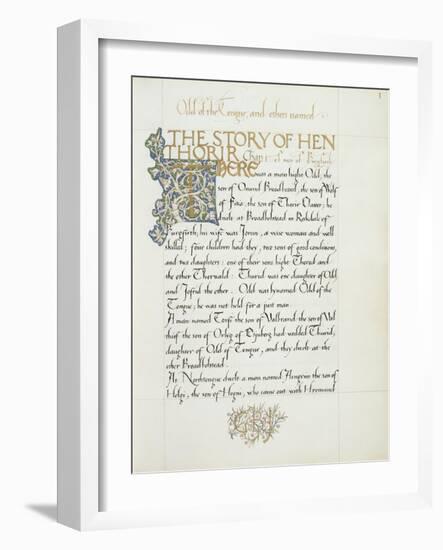 1
Odd of the Tongue, and others named
THE STORY OF HEN
THORIR. Chap. I. of men of Burgfirth
THERE
was a man hight Odd, the
son of Onund Broadbeard, the son of Wolf
of Fitia, the son of Thorir Clatter; he
dwelt at Broadbolstead in Rekdale of
Burgfirth; his wife was Jorun, a wise woman and well
skilled; four children had they, two sons of good conditions,
and two daughters: one of their sons hight Thorod and
the other Thorwald: Thurid was one daughter of Odd
and Jofrid the other. Odd was bynamed Odd of the
Tongue; he was not held for a just man.
A man named Torfi the son of Valbrand, the son of Val
thiof the son of Orlyg of Esjuberg had wedded Thurid,
daughter of Odd of Tongue, and they dwelt at the
other Broadbolstead.
At Northtongue dwelt a man named Arngrim the son of
Helgi, the son of Hogni, who came out with Hromund